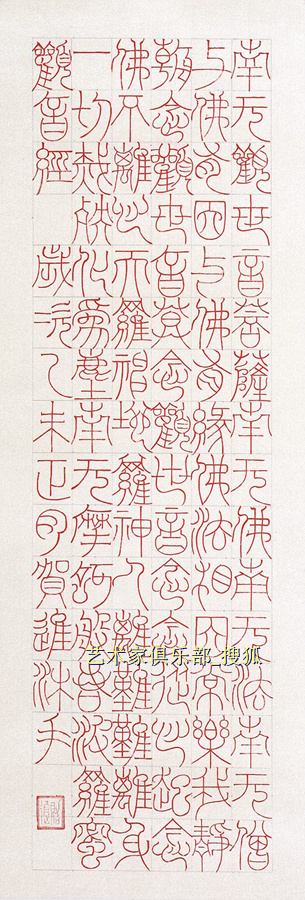 南无觀世音菩薩南无佛南无法南无僧
与佛有因与佛有緣佛法相因常樂我靜
朝念觀世音暮念觀世音念念從心起念
佛不離心天羅神地羅神人離難難離身
一切烖殃化為塵南无摩訶般若波羅蜜
觀音經 歲次乙未正月賀進沐手
艺术家俱乐部_搜狐